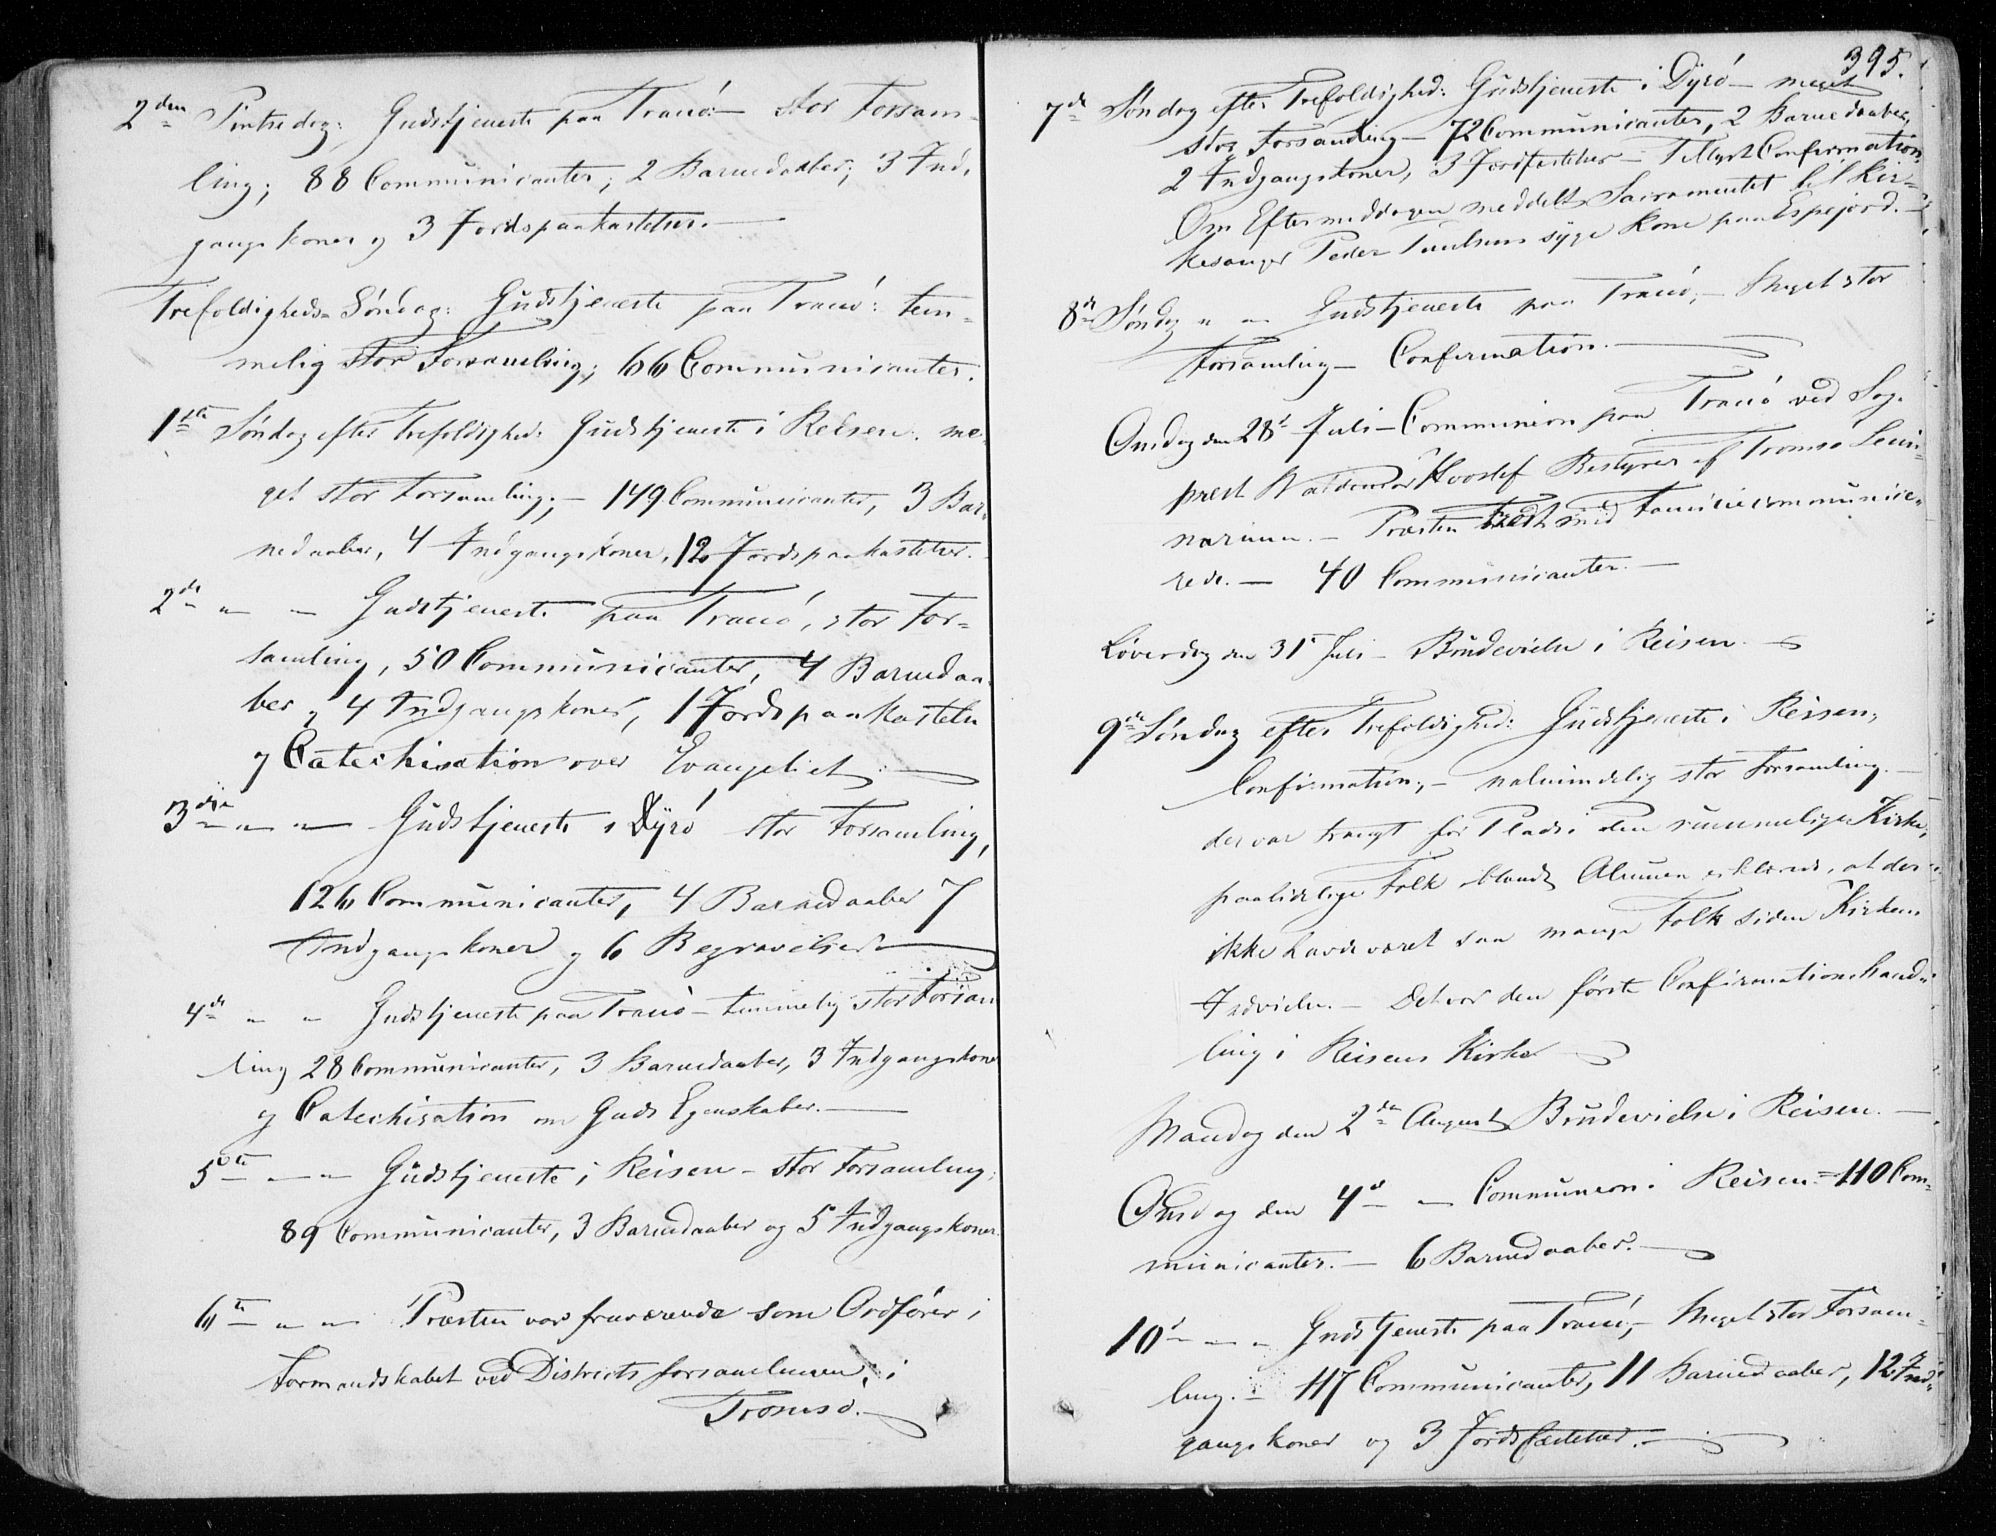 2den Pintsedag: Gudstjeneste paa Tranø:– stor Forsam-
ling; 88 Communicanter; 2 Barnedaaber; 3 Ind-
gangskoner og 3 Jordspaakastelser.–
Trefoldigheds-Søndag: Gudstjeneste paa Tranø: tem-
melig stor Forsamling; 66 Communicanter.
1ste Søndag efter Trefoldighed: Gudstjeneste i Reisen: me-
get stor Forsamling;– 149 Communicanter, 3 Bar-
nedaaber, 4 Indgangskoner, 12 Jordspaakastelser.
2de " – Gudstjeneste paa Tranø, stor For-
samling, 50 Communicanter, 4 Barnedaa-
ber, 4 Indgangskoner, 1 Jordspaakastelse
og Catechisation over Evangeliet.–
3die " – Gudstjeneste i Dyrø stor Forsamling,
126 Communicanter, 4 Barnedaaber 7
Indgangskoner og 6 Begravelser.
4de " " Gudstjeneste paa Tranø – temmelig stor Forsam
ling 28 Communicanter, 3 Barnedaaber, 3 Indgangskoner
og Catechisation om Guds Egenskaber.–
5te – " Gudstjeneste i Reisen – stor Forsamling:
89 Communicanter, 3 Barnedaaber og 5 Indgangskoner.
6te " " Præsten var fraværende som Ordfører i
Formandskabet ved Districtsforsamlingen i
Tromsø.–
395.
7de Søndag efter Trefoldighed: Gudstjeneste i Dyrø – meget
stor Forsamling – 72 Communicanter, 2 Barnedaaber,
2 Indgangskoner, 3 Jordfæstelser – Tillyst Confirmation.
Om Eftermiddagen meddelt Sacramentet til Kir-
kesanger Peder Paulsens syge Kone paa Espejord.–
8de Søndag " – Gudstjeneste paa Tranø;– Meget stor
Forsamling – Confirmation.–
Onsdag den 28de Juli – Communion paa Tranø ved Sog-
nerinm.– Præsten med Familie communice-
rede.– 40 Communicanter.–
Løverdag den 31te Juli – Brudevielse i Reisen.–
9de Søndag efter Trefoldighed: Gudstjeneste i Reisen,
Confirmation;– ualmindelig stor Forsamling.–
der var trangt for Plads i den rummelige Kirke,
paalidelige Folk blandt Almuen erklærede, at der
ikke havde været saa mange Folk siden Kirkens
Indvielse.– Det var den første Confirmationshand-
ling i Reisens Kirke.
Mandag den 2den August Brudevielse i Reisen.–
Onsdag den 4de – Communion i Reisen – 110 Com-
municanter.– 6 Barnedaaber.–
10de – " Gudstjeneste paa Tranø,– Meget stor Forsam-
ling.– 117 Communicanter, 11 Barnedaaber, 12 Ind-
gangskoner og 3 Jordsfæstelser.–